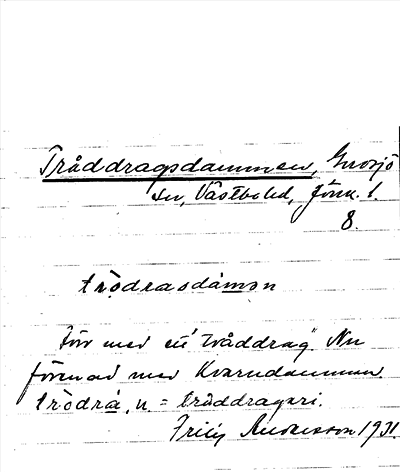 Tråddragsdammen, Gnosjö
sn, Västbo hd, Jönk. l.
8.
trödrasdámən
Förr med ett "tråddrag". Nu
förenad med Kvarndammen.
trödrá, n. = tråddrageri.
Fritiz Andersson 1931